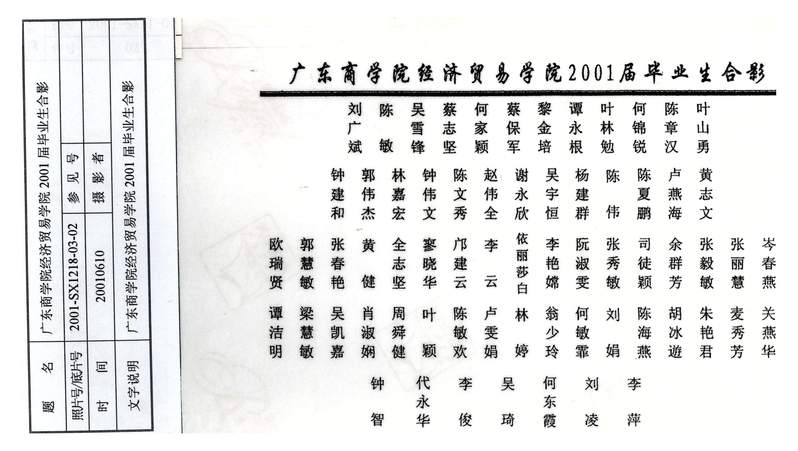 题 名 广东商学院经济贸易学院2001届毕业生合影
照片号/底片号 2001-SX1218-03-02 参见号
时 间 20010610 摄影者
文字说明 广东商学院经济贸易学院2001届毕业生合影
广东商学院经济贸易学院2001届毕业生合影
刘广斌 陈敏 吴雪锋 蔡志坚 何家颖 蔡保军 黎金培 谭永根 叶林勉 何锦锐 陈章汉 叶山勇
钟建和 郭伟杰 林嘉宏 钟伟文 陈文秀 赵伟全 谢永欣 吴宇恒 杨建群 陈伟 陈夏鹏 卢燕海 黄志文
欧瑞贤 郭慧敏 张春艳 黄健 全志坚 寥晓华 邝建云 李云 依丽莎白 李艳嫦 阮淑雯 张秀敏 司徒颖 余群芳 张毅敏 张丽慧 岑春燕
谭洁明 梁慧敏 吴凯嘉 肖淑娴 周舜健 叶颖 陈敏欢 卢雯娟 林婷 翁少玲 何敏霏 刘娟 陈海燕 胡冰遊 朱艳君 麦秀芳 关燕华
钟智 代永华 李俊 吴琦 何东霞 刘凌 李萍